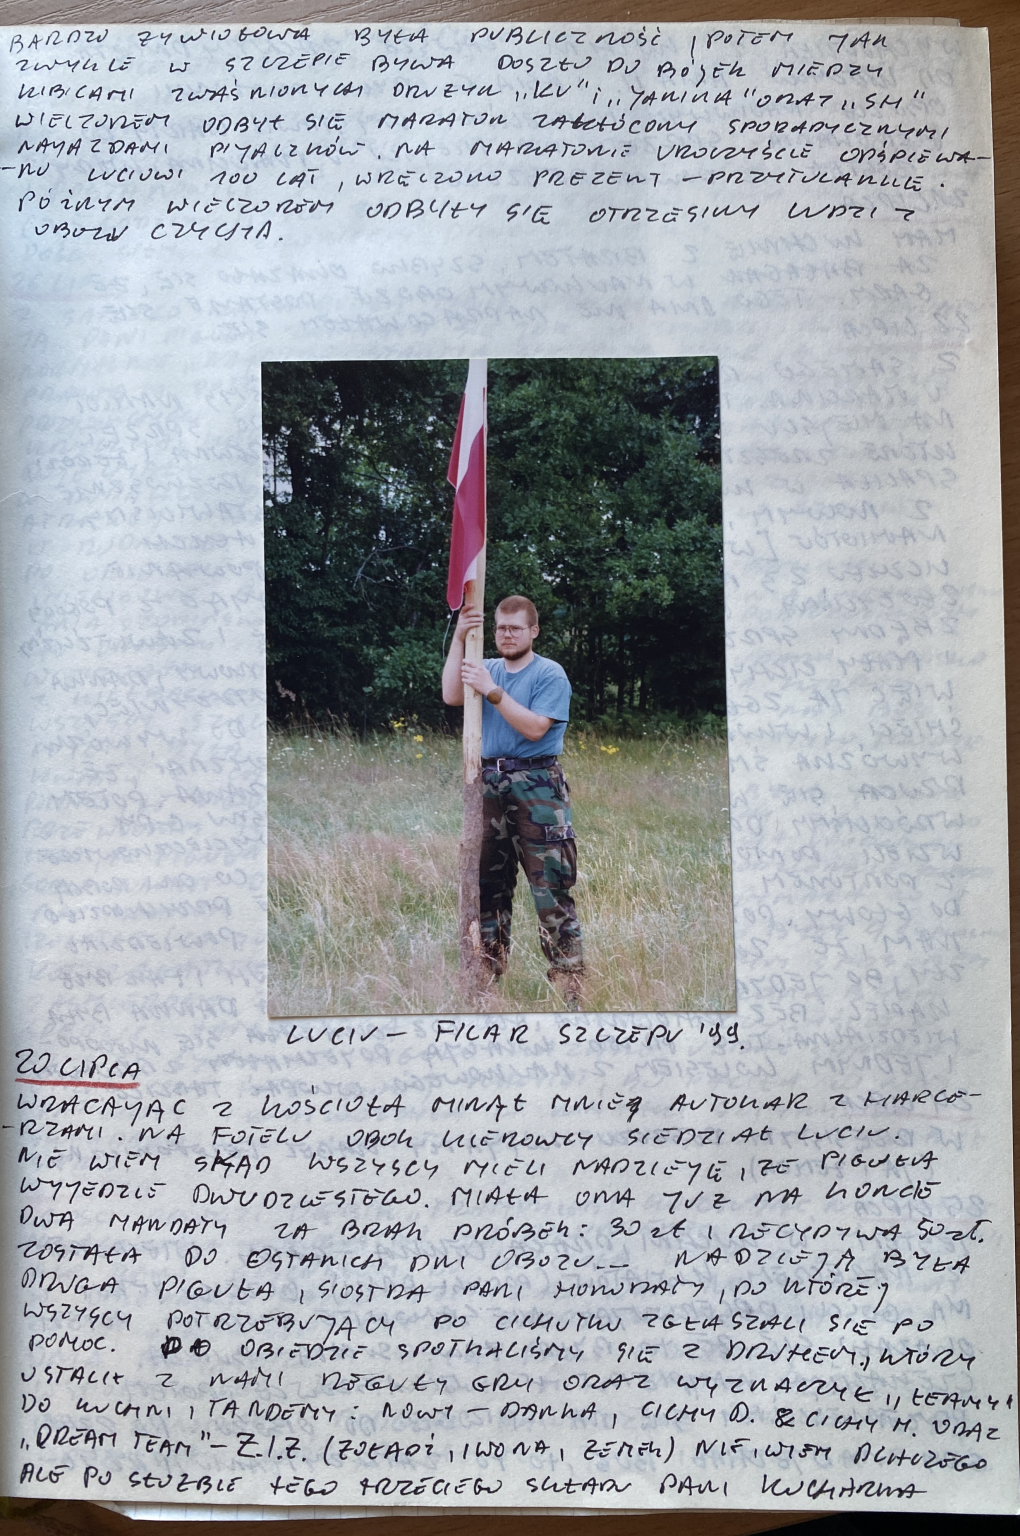 BARDZO ŻYWIOŁOWA BYŁA PUBLICZNOŚĆ, POTEM JAK
ZWYKLE W SZCZEPIE BYWA DOSZŁO DO BÓJEK MIEDZY
KIBICAMI ZWAŚNIONYCH DRUŻYN „KU” i „JANINA” ORAZ „SM”
WIECZOREM ODBYŁ SIĘ MARATON ZAKŁÓCONY SPORADYCZNYMI
NAJAZDAMI PIJACZKÓW. NA MARATONIE UROCZYŚCIE ODŚPIEWA-
-NO LUCIOWI 100 LAT, WRĘCZONO PREZENT – PRZYTULANKĘ.
PÓŹNYM WIECZOREM ODBYŁY SIĘ OTRZĘSINY LUDZI Z
OBOZU CZYCHA.
LUCIU – FILAR SZCZEPU '99.
20 LIPCA
WRACAJĄC Z KOŚCIOŁA MINĄŁ MNIE AUTOKAR Z HARCE-
-RZAMI. NA FOTELU OBOK KIEROWCY SIEDZIAŁ LUCIU.
NIE WIEM SKĄD WSZYSCY MIELI NADZIEJĘ, ŻE PIGUŁA
WYJEDZIE DWUDZIESTEGO. MIAŁA ONA JUŻ NA KONCIE
DWA MANDATY ZA BRAK PRÓBEK: 30 zł I RECYDYWA 50 zł.
ZOSTAŁA DO OSTANICH DNI OBOZU... NADZIEJĄ BYŁA
DRUGA PIGUŁA, SIOSTRA PANI HONORATY, DO KTÓREJ
WSZYSCY POTRZEBUJĄCY PO CICHUTKU ZGŁASZALI SIĘ PO
POMOC. PO OBIEDZIE SPOTKALIŚMY SIĘ Z DRUHEM, KTÓRY
USTALIŁ Z NAMI REGUŁY GRY ORAZ WYZNACZYŁ „TEAMY”
DO KUCHNI, TANDEMY: NOWY – DANKA, CICHY D. & CICHY M. ORAZ
„DREAM TEAM” – Z.I.Z. (ŻOŁĄDŹ, IWONA, ZEMEK) NIE WIEM DLACZEGO
ALE PO SŁUŻBIE TEGO TRZECIEGO SKŁADU PANI KUCHARKA